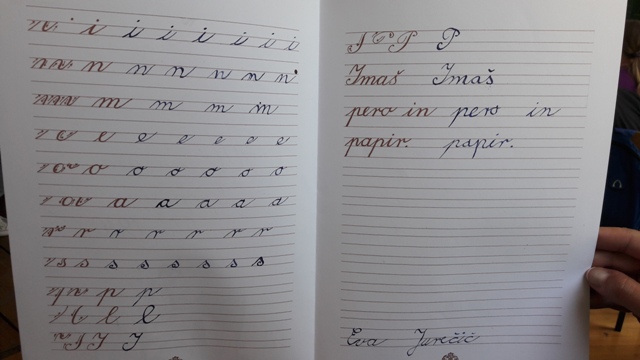 i i i i i i i i
n n n n n n n
m m m m
e e e e e e e
o o o o o o
a a a a a a
r r r r r r
s s s s s s s
p p
l l
I I
P P
Imaš Imaš
pero in pero in
papir. papir.
Eva Jurečič